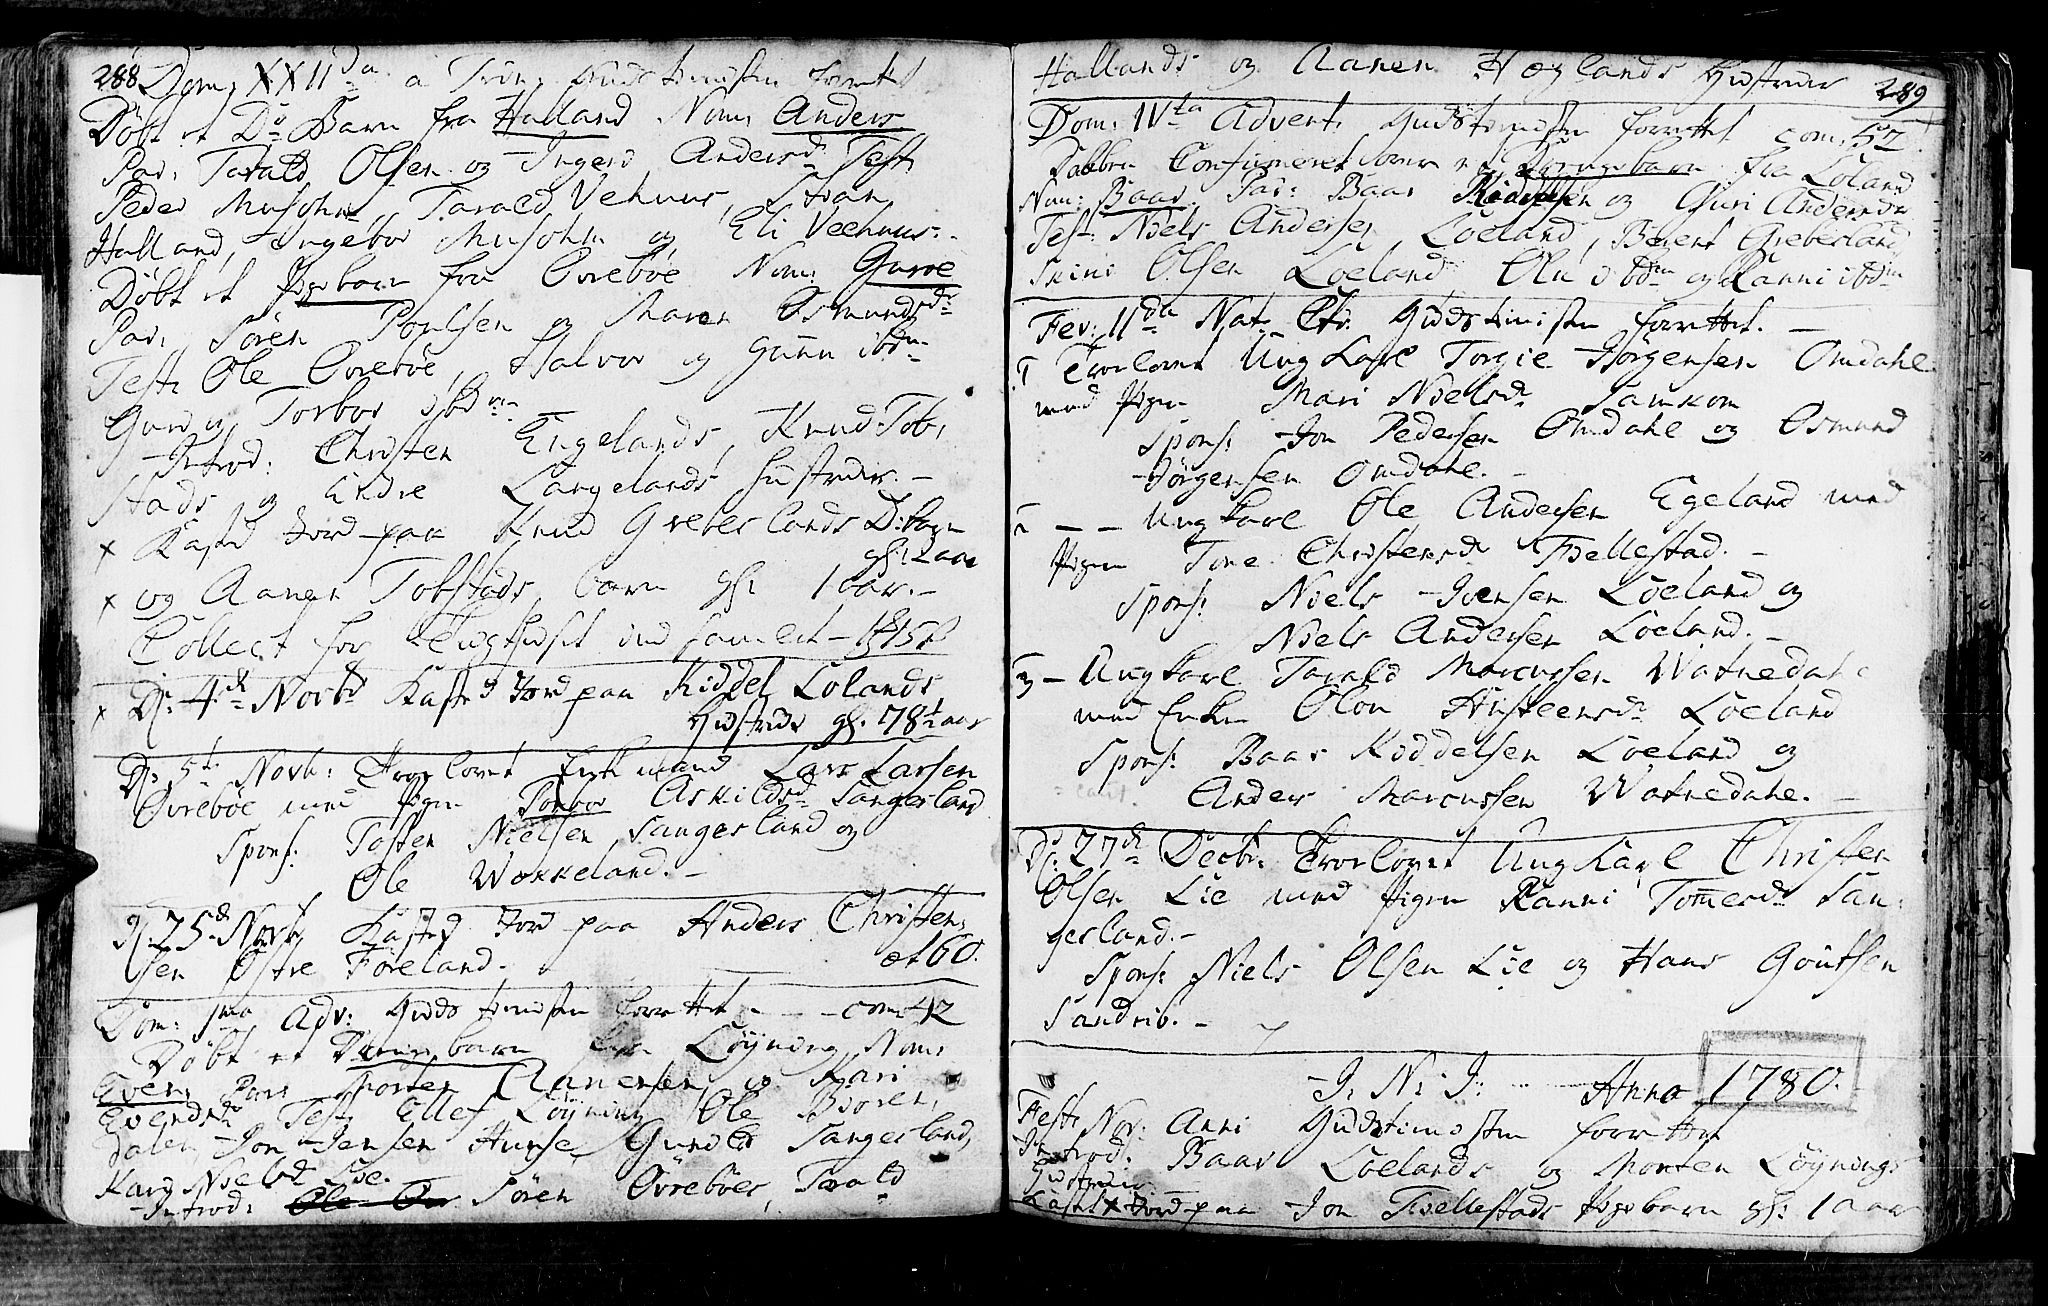 288 Dom: XXIIda a Trin: Gudstienisten forrettet
Døbt et Do Barn fra Halland Nom: Anders
Par: Tarald Olsen og Ingerd Andersd: Test:
Peder Musholm, Tarald Vehuus,
Halland, Ingebor Musholm og Eli Veehuus.
Døbt et Pigebarn fra Øvrebøe Nom: Guroe
Par: Søren Poulsen og Maren Osmundsdr
Test: Ole Øvrebøe, Halvor og Gunn ibdm
Gurd og Torbor ibdm
Introd: Christen Engelands, Knud Tob:
Stads og Endre Langelands Hustruer. -
x Kasted Jord paa Knud Greberlands D: barn
gl: 2 aar
x og Aanen Tobstads barn gl: 1 aar. -
Collect for Tugthuset ind samlet -
x D: 4de Novbr Kasted Jord paa Kiddel Lølands
Hustrue gl: 78½ aar
D: 5te Novb: Trorlovet Enkemand Lars Larsen
Øvrebøe med Pigen Torbor Askildsd: Sangesland
Spons: Tosten Nielsen Sangesland og
Ole Wokkeland. -
D: 25de Novb: Kasted Jord paa Anders Christen:
sen Østre Føreland. æt 60.
Dom: 1ma Adv: Guds tienesten forrettet - - - com: 42
Døbt et Drengebarn fra Løyning Nom:
Even, Par: Morten Aanensen og Kari
Evendsdr Test: Ellef Løyning Ole Bioren,
dalen, Jon Jensen Hunse, Gunder Sangesland,
Kari Nielsd Lie.
Introd: Søren Øvrebøes, Tarald
Hallands og Aanen Høylands Hustruer 289
Dom: IVta Advent: Gudstienisten forrettet com: 52.
Daaben Confirmeret over et Drengebarn fra Løland
Nom: Baar Par: Baar Kiddelsen og Guri Andersdr
Test: Niels Andersen Løeland, Berent Greberland
Olsen Løeland, Oln ibdm og Ranni ibdm
Fer: IIda Nat. Chr. Gudstienisten forrettet. -
1 Trorlovet Ung Karl Torgie Jørgensen Omdahl
med Pigen Mari Nielsdr
Spons: Jon Pedersen Omdahl og Osmund
Jørgensen Omdahl. -
2 - - Ung Karl Ole Andersen Egeland med
Pigen Tone Christensdr Fiellestad. -
Spons: Niels Ivensen Løeland og
Niels Andersen Løeland. -
3 - Ung Karl Tarald Marcussen Watnedahl
med Enken Olou Løeland
Spons: Baar Kiddelsen Løeland og
Anders Marcussen Watnedahl. -
D: 27de Decbr: Trorlovet Ung Karl Christen
Olsen Lie med Pigen Ranni Tomesdr San:
gesland. -
Spons: Niels Olsen Lie og Hans Goutsen
Sandrib. -
I: N: I: - - Anno 1780.
Fest: Nov: Anni Gudstienesten forrettet
Introd: Baar Løelands og Morten Løynings
Hustruer
Kastet x Jord paa Jon Fiellestads Pigebarn gl: 1 aar